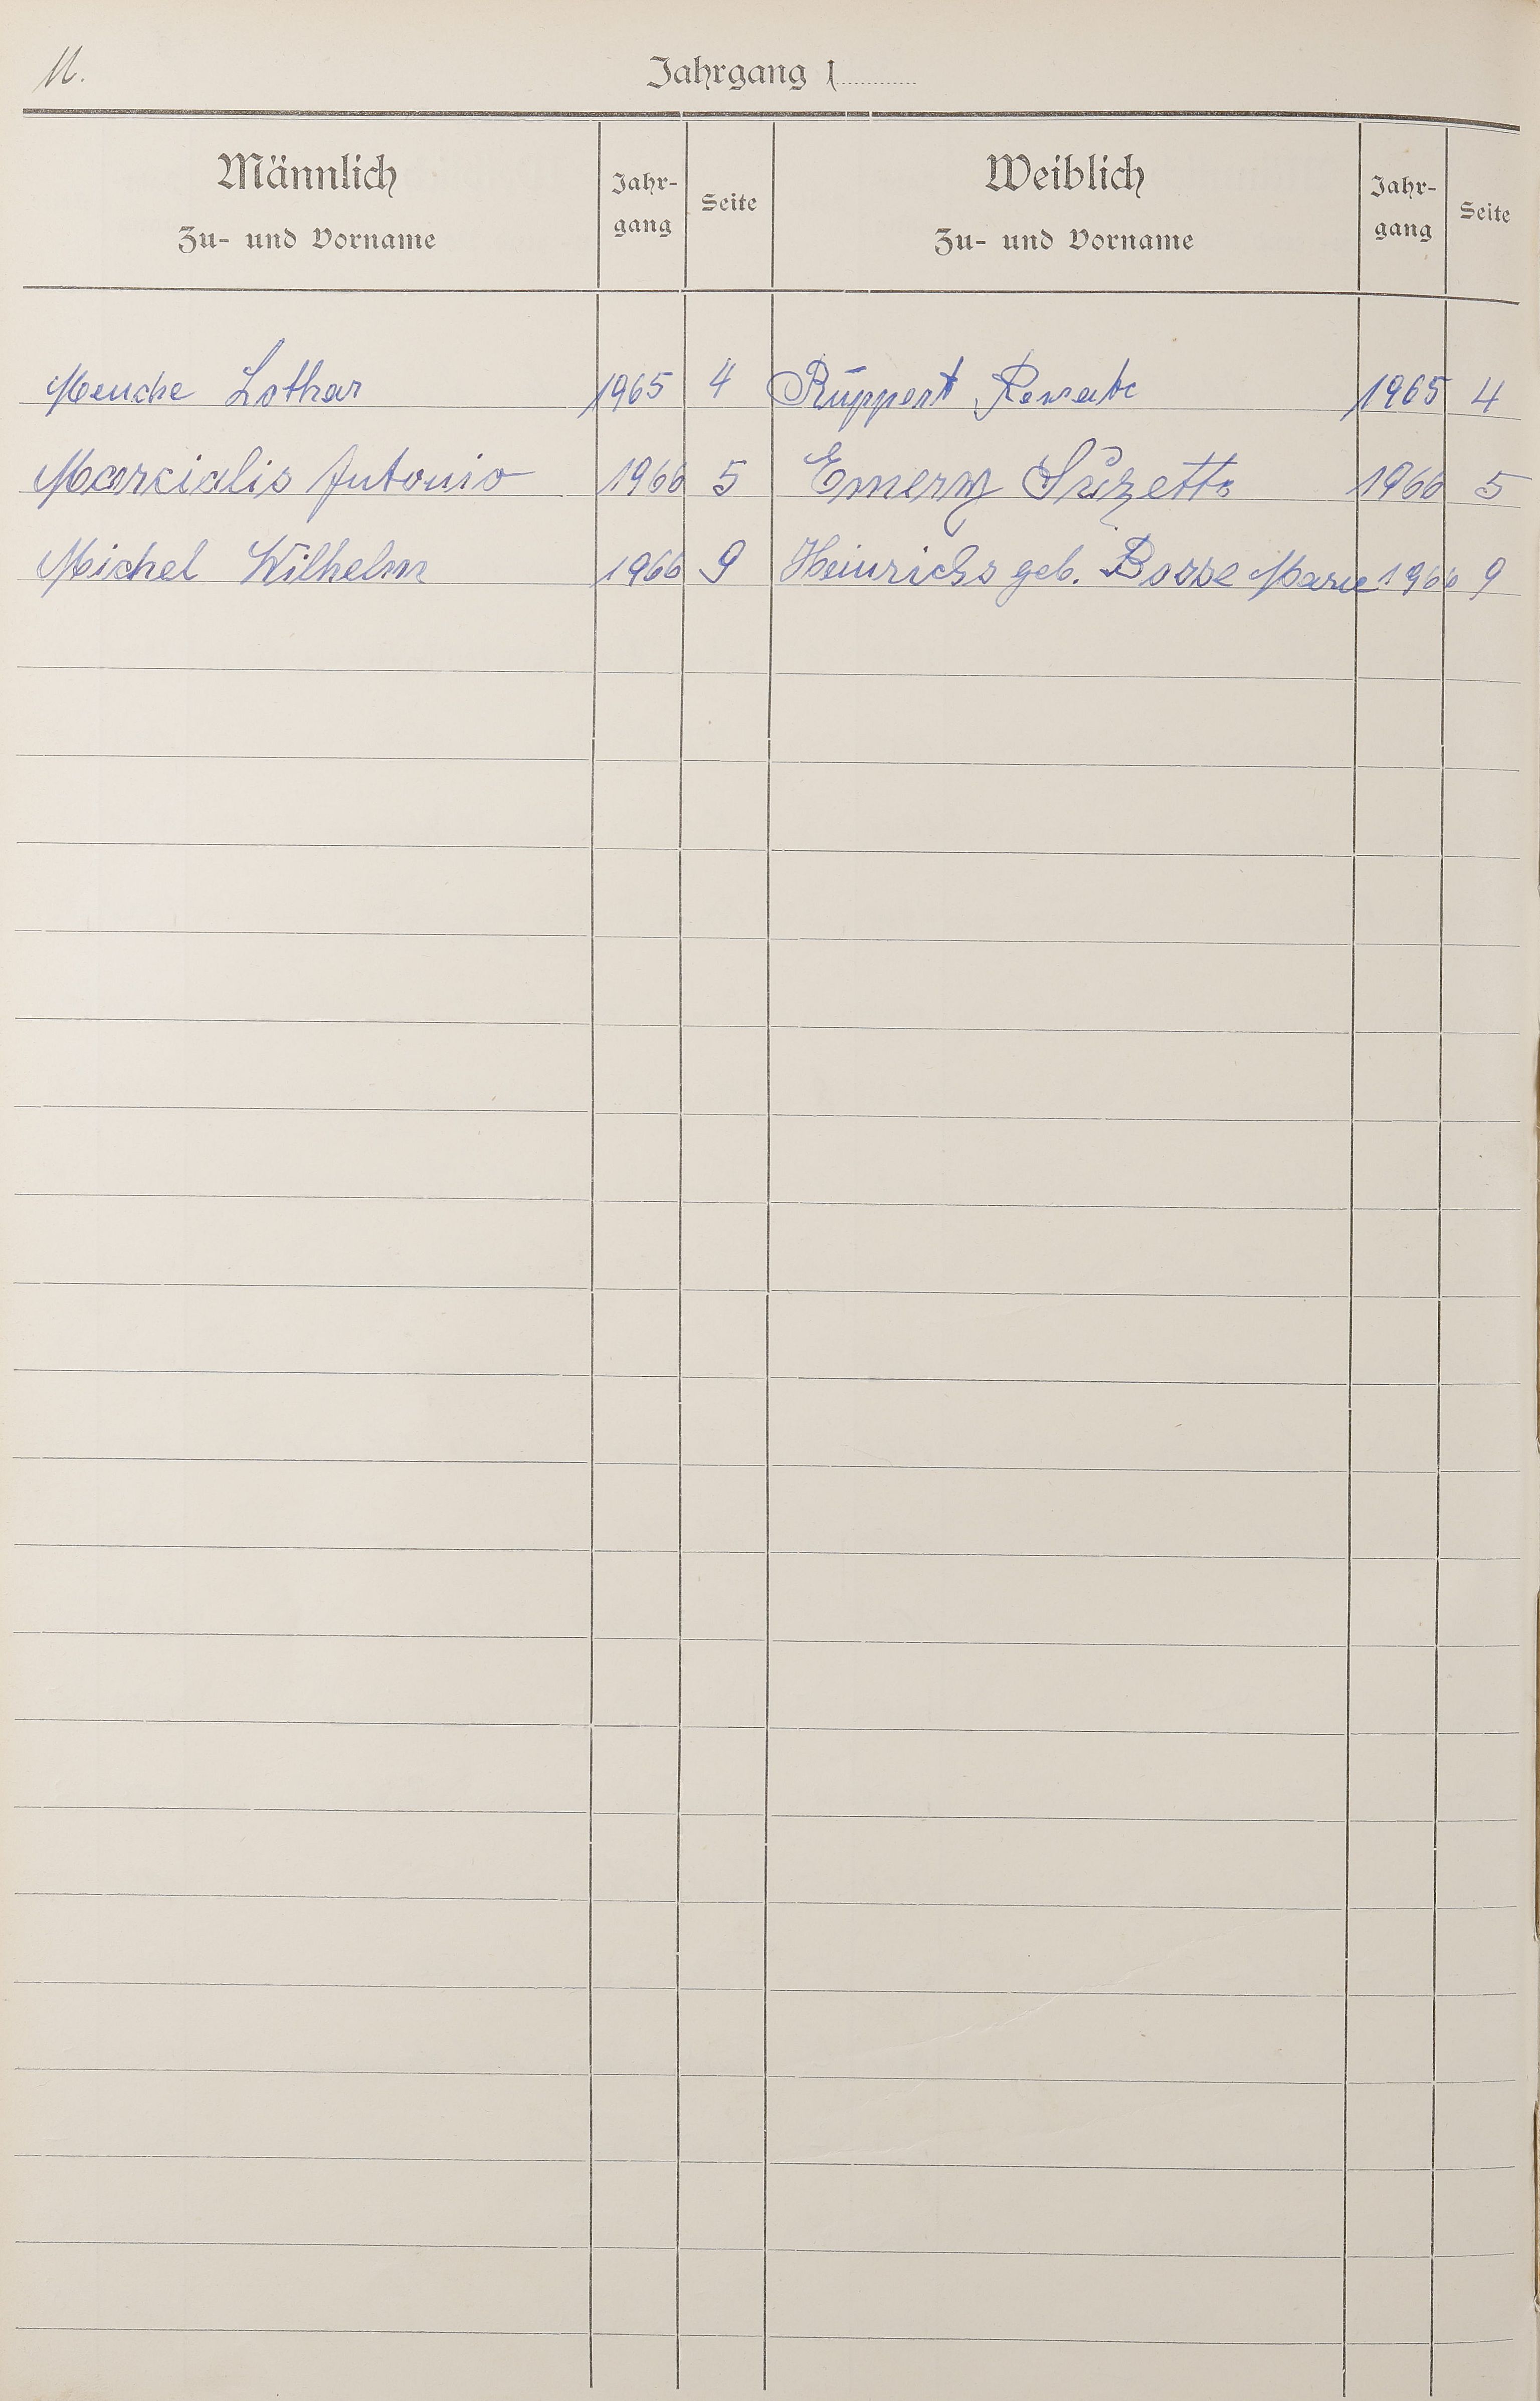 M.
Jahrgang 1
Männlich
Zu- und Vorname
Jahr-
gang
Seite
Weiblich
Zu- und Vorname
Jahr-
gang
Seite
Menche Lothar 1965 4 Ruppert Renate 1965 4
Marcialis Antonio 1966 5 Emery Suzette 1966 5
Michel Wilhelm 1966 9 Heinrichs geb. Bosse Marie 1966 9